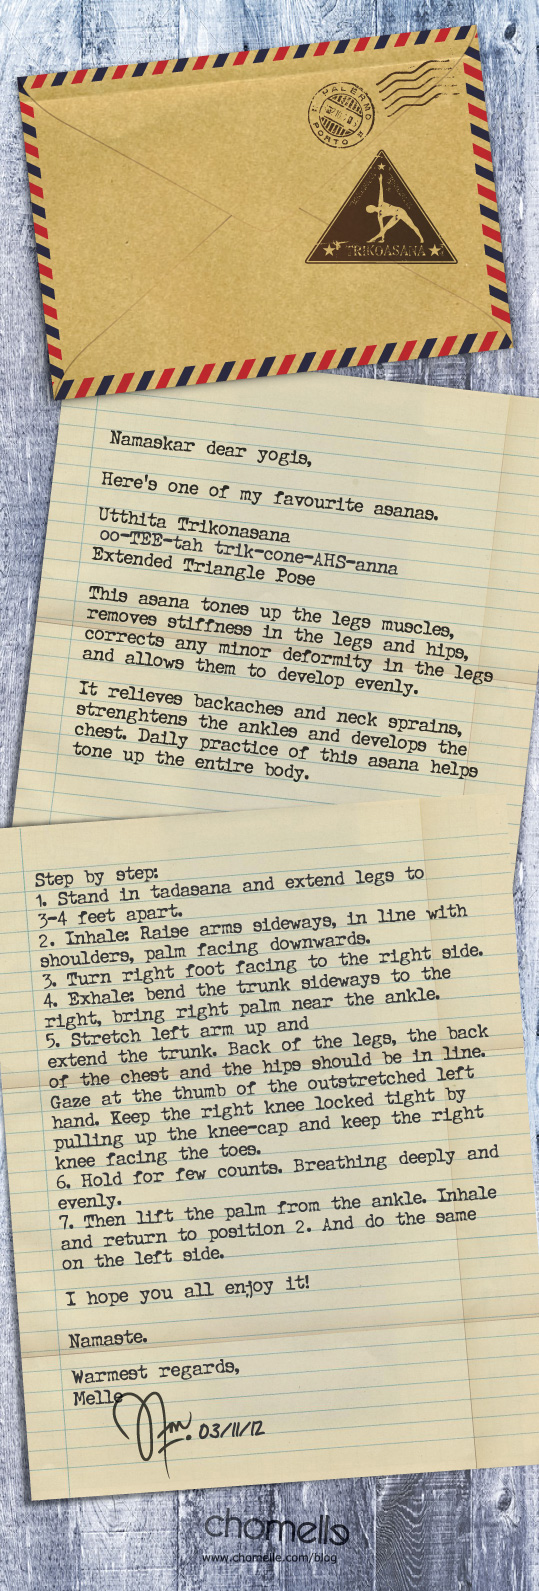 PALERMO
PORTO
TRIKOASANA
Namaskar dear yogis,
Here's one of my favourite asanas.
Utthita Trikonasana
oo-TEE-tah trik-cone-AHS-anna
Extended Triangle Pose
This asana tones up the legs muscles,
removes stiffness in the legs and hips,
corrects any minor deformity in the legs
and allows them to develop evenly.
It relieves backaches and neck sprains,
strenghtens the ankles and develops the
chest. Daily practice of this asana helps
tone up the entire body.
Step by step:
1. Stand in tadasana and extend legs to
3-4 feet apart.
2. Inhale: Raise arms sideways, in line with
shoulders, palm facing downwards.
3. Turn right foot facing to the right side.
4. Exhale: bend the trunk sideways to the
right, bring right palm near the ankle.
5. Stretch left arm up and
extend the trunk. Back of the legs, the back
of the chest and the hips should be in line.
Gaze at the thumb of the outstretched left
hand. Keep the right knee locked tight by
pulling up the knee-cap and keep the right
knee facing the toes.
6. Hold for few counts. Breathing deeply and
evenly.
7. Then lift the palm from the ankle. Inhale
and return to position 2. And do the same
on the left side.
I hope you all enjoy it!
Namaste.
Warmest regards,
Melle
03/11/12
chomelle
www.chomelle.com/blog